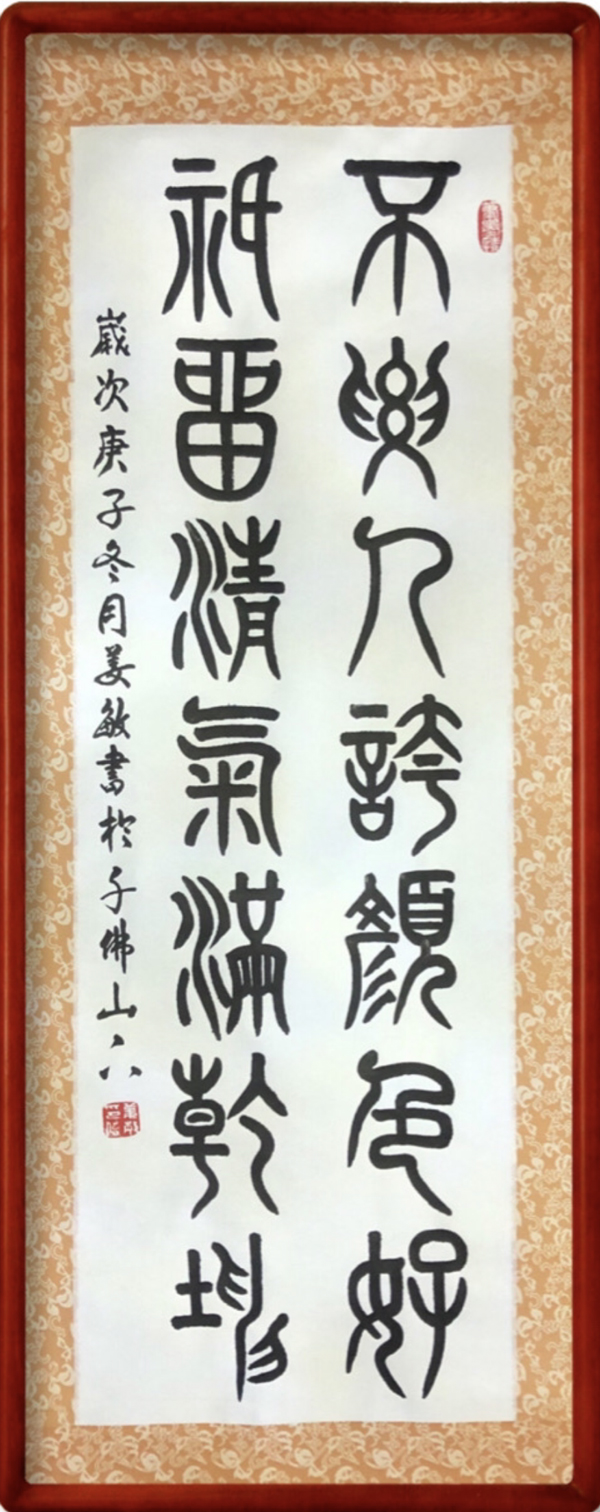 不要人誇顏色好
祇留清氣滿乾坤
歲次庚子冬月姜敏書於千佛山下